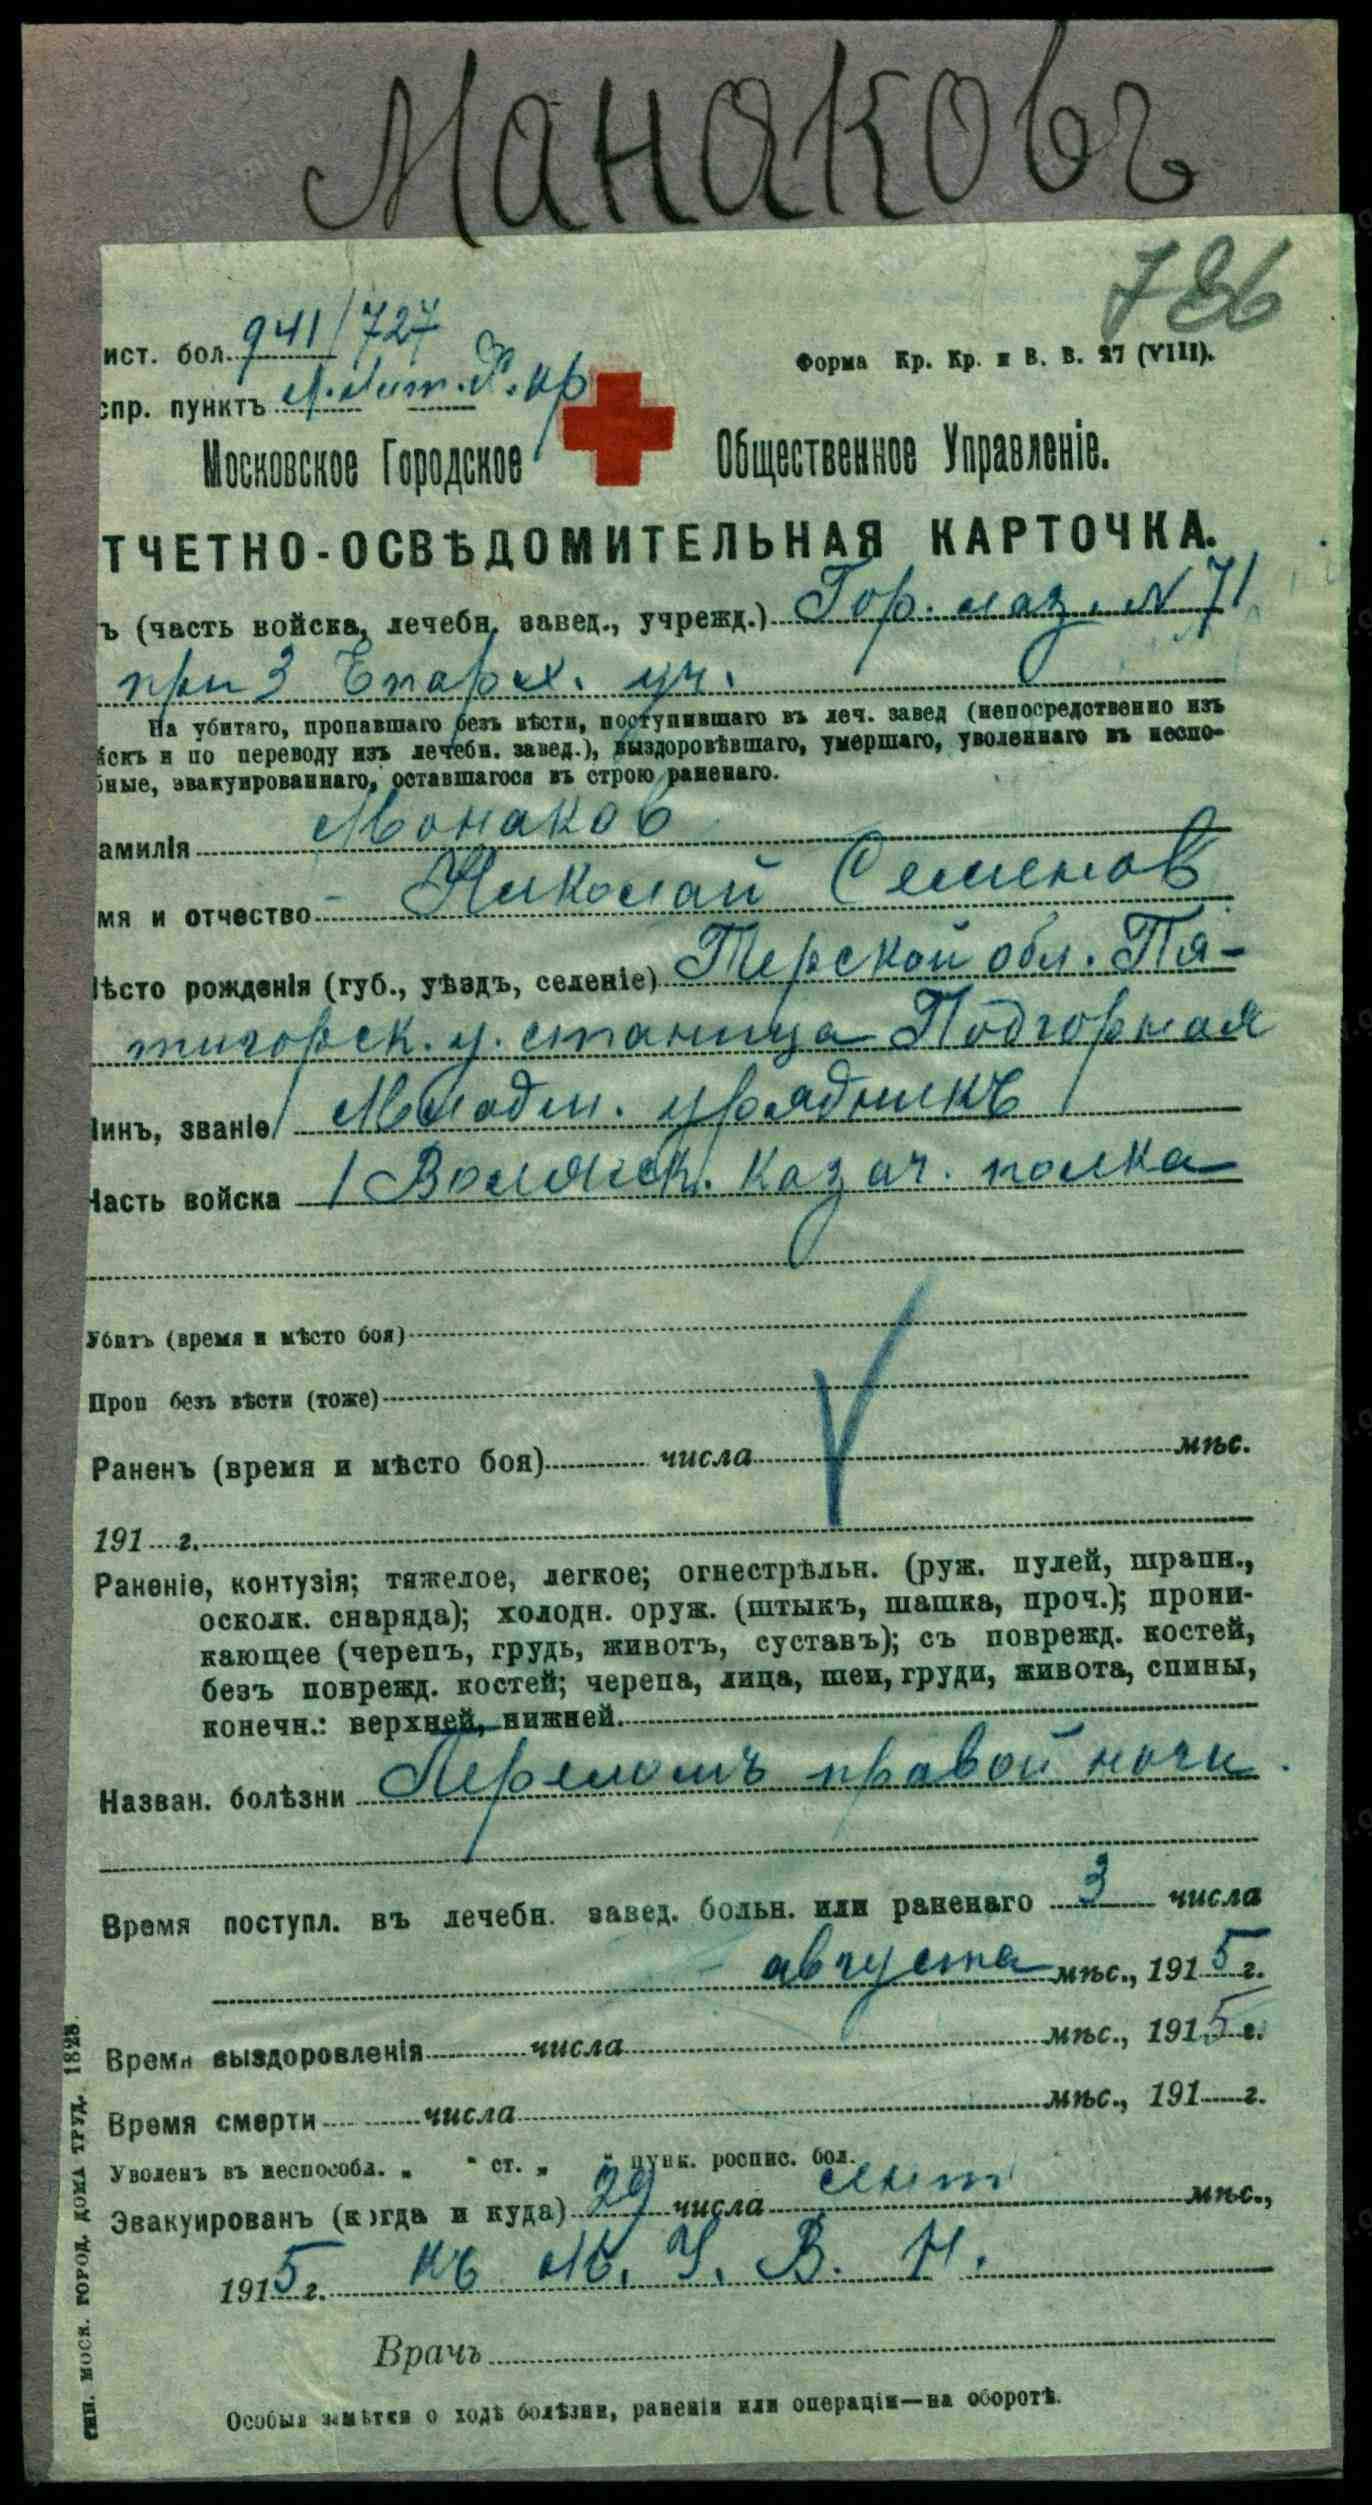 Манаковъ
786
ист. бол. 941/727
Форма Кр. Кр. и В. В. 27 (VIII).
спр. пунктъ
Московское Городское Общественное Управленіе.
ТЧЕТНО-ОСВѢДОМИТЕЛЬНАЯ КАРТОЧКА.
ъ (часть войска, лечебн. завед., учрежд.) Гор. лаз. N 71
при 3 Епарх. уч.
На убитаго, пропавшаго безъ вѣсти, поступившаго въ леч. завед (непосредственно изъ
йскъ и по переводу изъ лечебн. завед.), выздоровѣвшаго, умершаго, уволеннаго въ неспо-
бные, эвакуированнаго, оставшагося въ строю раненаго.
амилія Монаков
мя и отчество Николай Семенов
ѣсто рожденія (губ., уѣздъ, селеніе) Терской обл. Пя-
тигорск. у. станица Подгорная
Чинъ, званіе Младш. урядникъ
Часть войска 1 Волжск. казач. полка
Убитъ (время и мѣсто боя)
Проп безъ вѣсти (тоже)
Раненъ (время и мѣсто боя) числа мѣс.
191 г.
Раненіе, контузія; тяжелое, легкое; огнестрѣльн. (руж. пулей, шрапн.,
осколк. снаряда); холодн. оруж. (штыкъ, шашка, проч.); прони-
кающее (черепъ, грудь, животъ, суставъ); съ поврежд. костей,
безъ поврежд. костей; черепа, лица, шеи, груди, живота, спины,
конечн.: верхней, нижней.
Назван. болѣзни Переломъ правой ноги
Время поступл. въ лечебн. завед. больн. или раненаго 3 числа
августа мѣс., 1915 г.
Время выздоровленія числа мѣс., 1915 г.
Время смерти числа мѣс., 191 г.
Уволенъ въ неспособл. „ " ст. „ " пунк. роспис. бол.
Эвакуированъ (когда и куда) 29 числа сент мѣс.,
1915 г. къ М. У. В. Н.
Врачъ
Особыя замѣтки о ходѣ болѣзни, раненія или операціи—на оборотѣ.
МОСК. ГОРОД. ДОМА ТРУД. 1828.